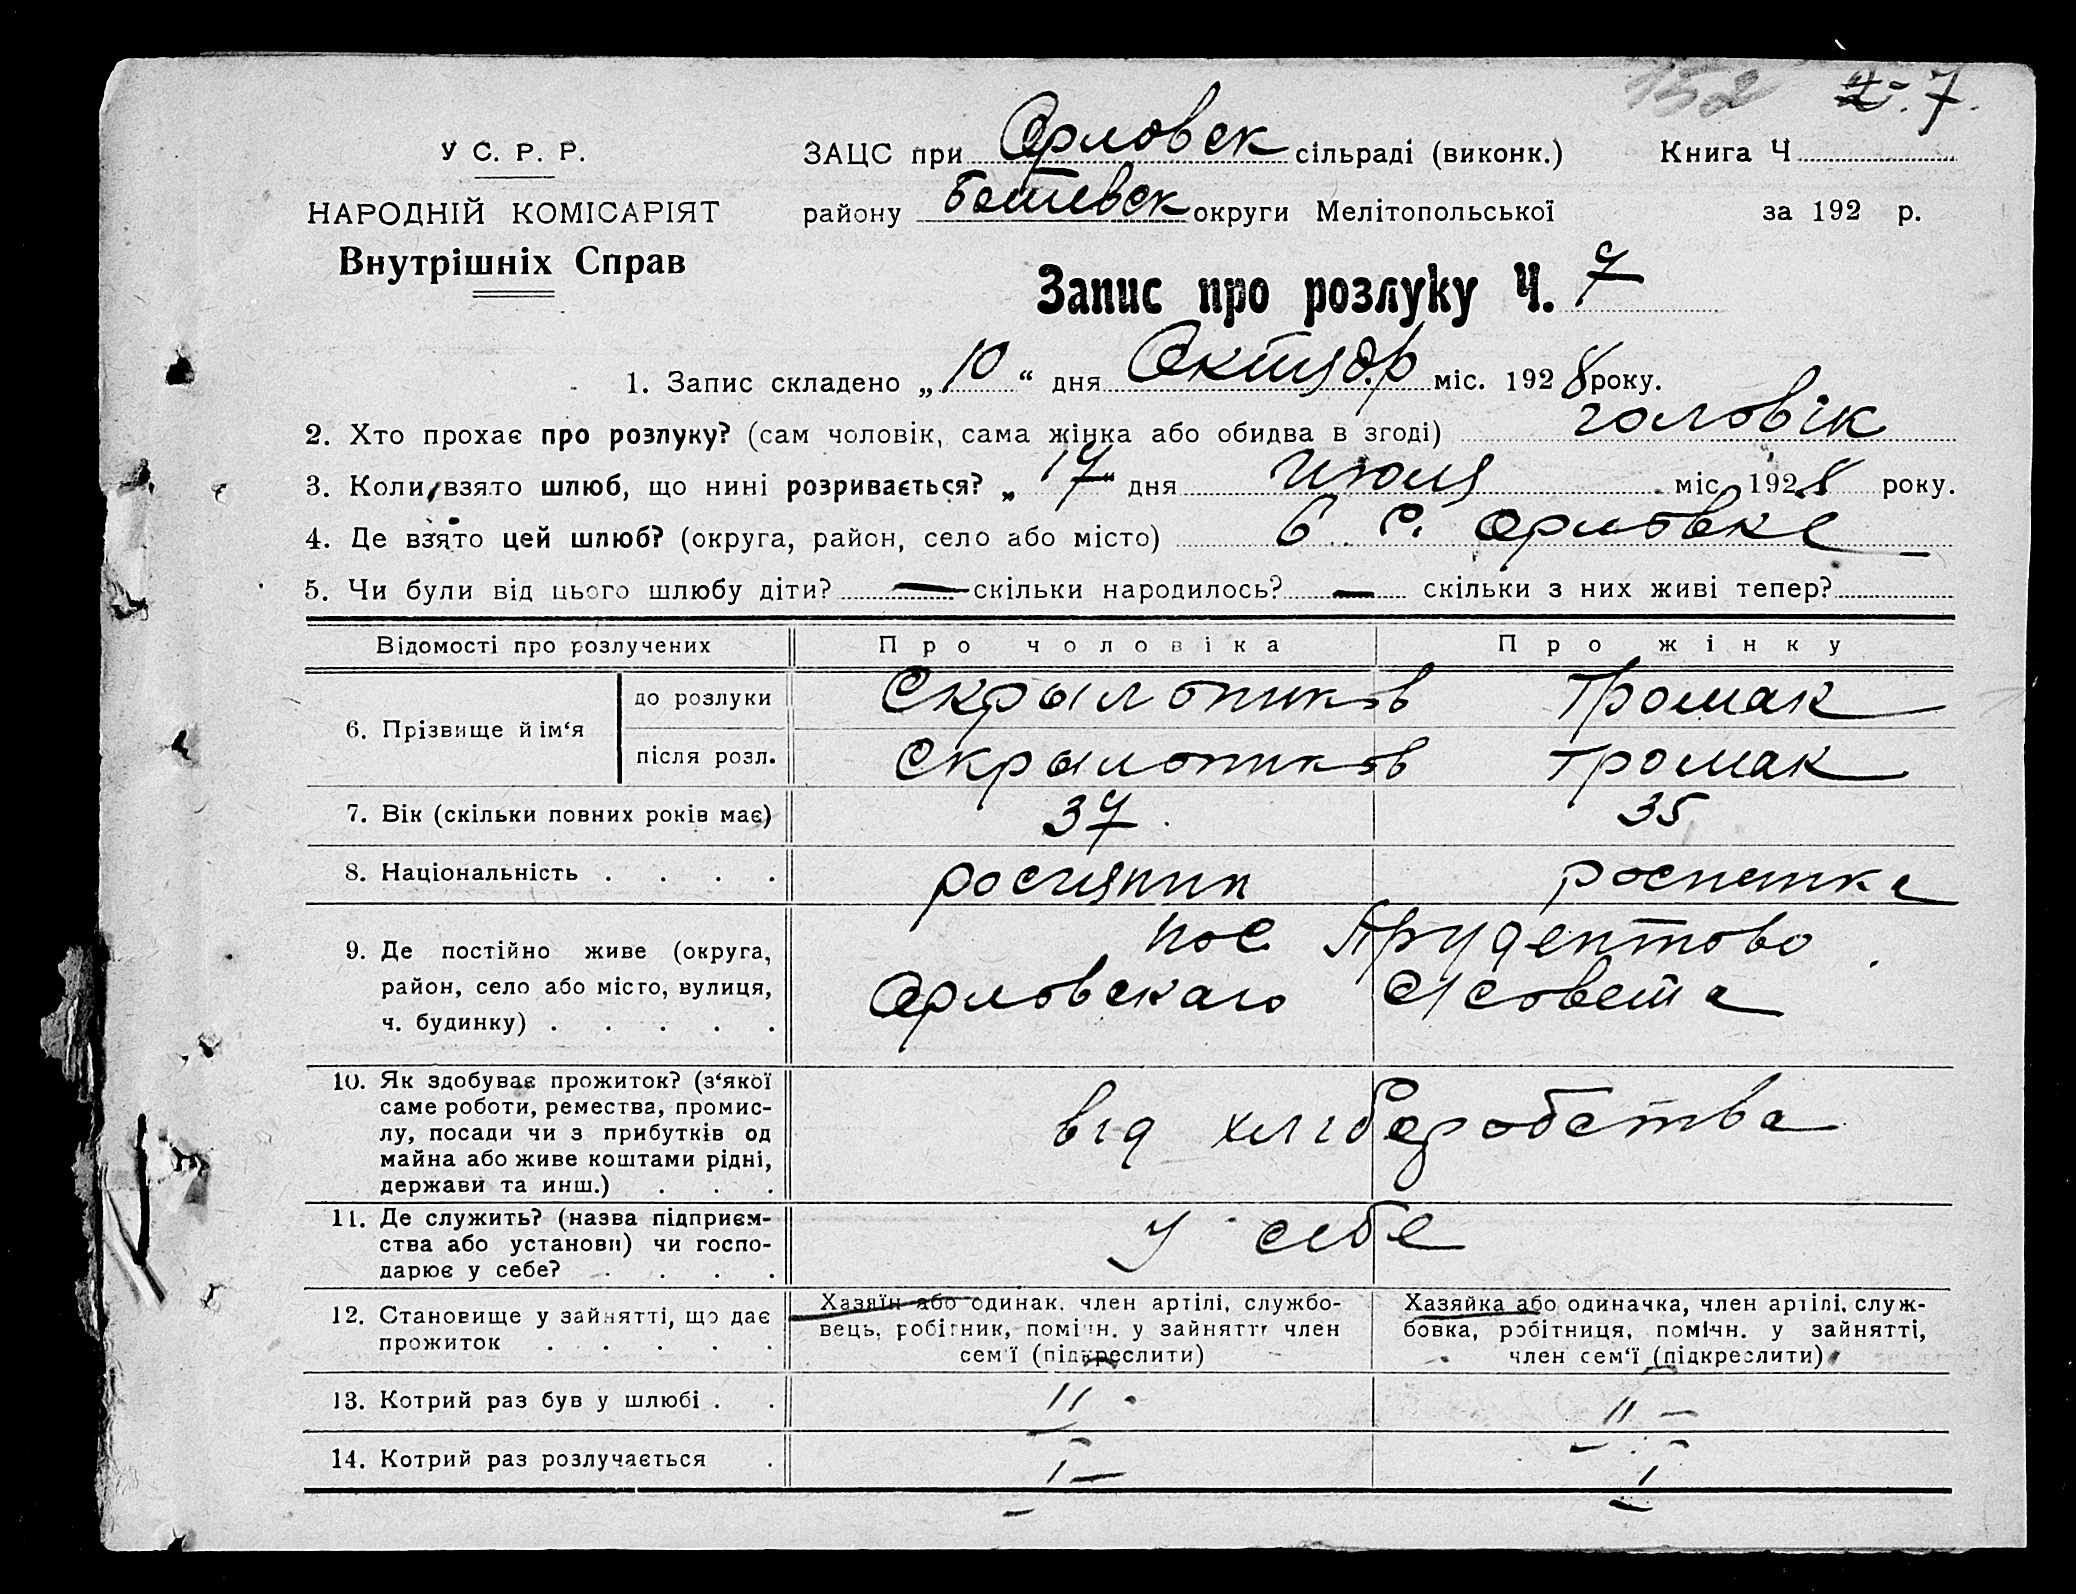 152 2. 7.
У С. Р. Р.
НАРОДНІЙ КОМІСАРІЯТ
Внутрішніх Справ
ЗАЦС при Орловск сільраді (виконк.) Книга Ч
району округи Мелітопольської за 192 р.
Запис про розлуку Ч. 7
1. Запис складено „10“ дня Октябр міс. 1928 року.
2. Хто прохає про розлуку? (сам чоловік, сама жінка або обидва в згоді) чоловік
3. Коли взято шлюб, що нині розривається? „17“ дня июля міс. 1928 року.
4. Де взято цей шлюб? (округа, район, село або місто) в с. Орловке
5. Чи були від цього шлюбу діти? — скільки народилось? — скільки з них живі тепер?
Відомості про розлучених Про чоловіка Про жінку
6. Прізвище й ім‘я до розлуки Тромак
після розл. Тромак
7. Вік (скільки повних років має) 37. 35
8. Національність . . . .
9. Де постійно живе (округа, район, село або місто, вулиця, ч. будинку) . . . . . пос Прудентово
Орловскаго с/совета
10. Як здобуває прожиток? (з‘якої
саме роботи, ремества, промис-
лу, посади чи з прибутків од
майна або живе коштами рідні,
держави та инш.) . . .
від хліборобства
11. Де служить? (назва підприєм-
ства або установи) чи госпо-
дарює у себе? . . . .
у себе
12. Становище у зайнятті, що дає
прожиток . . . . .
Хазяїн або одинак. член артілі, службо-
вець, робітник, помічн. у зайнятті член
сем‘ї (підкреслити)
Хазяйка або одиначка, член артілі, служ-
бовка, робітниця, помічн. у зайнятті,
член сем‘ї (підкреслити)
13. Котрий раз був у шлюбі . . II II —
14. Котрий раз розлучається . I — I